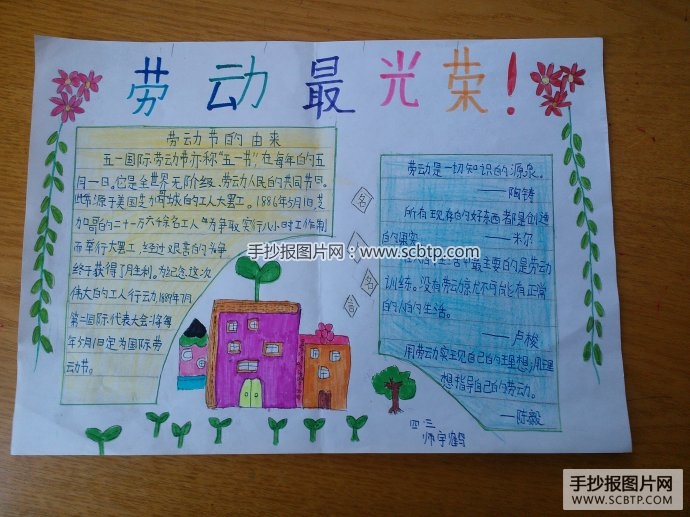 劳动最光荣!
劳动节的由来
五一国际劳动节亦称"五一节",在每年的五
月一日。它是全世界无阶级、劳动人民的共同节日。
此节源于美国芝加哥城的工人大罢工。1886年5月1日芝
加哥的二十一万六千余名工人为争取实行八小时工作制
而举行大罢工,经过艰苦的
终于获得了胜利。为纪念这次
伟大的工人行动,1889年7月
第二国际代表大会将每
年5月1日定为国际劳
动节。
名
言
名
言
劳动是一切知识的源泉。
——陶铸
所有现存的好东西都是创造
的果实。——米尔
生活中最主要的是劳动
训练。没有劳动就不可能有正常
的人的生活。
——卢梭
用劳动实现自己的理想,用理
想指导自己的劳动。
——陈毅
四.三
师宇
手抄报图片网:www.scbtp.com
手抄报图片网
WWW.SCBTP.COM